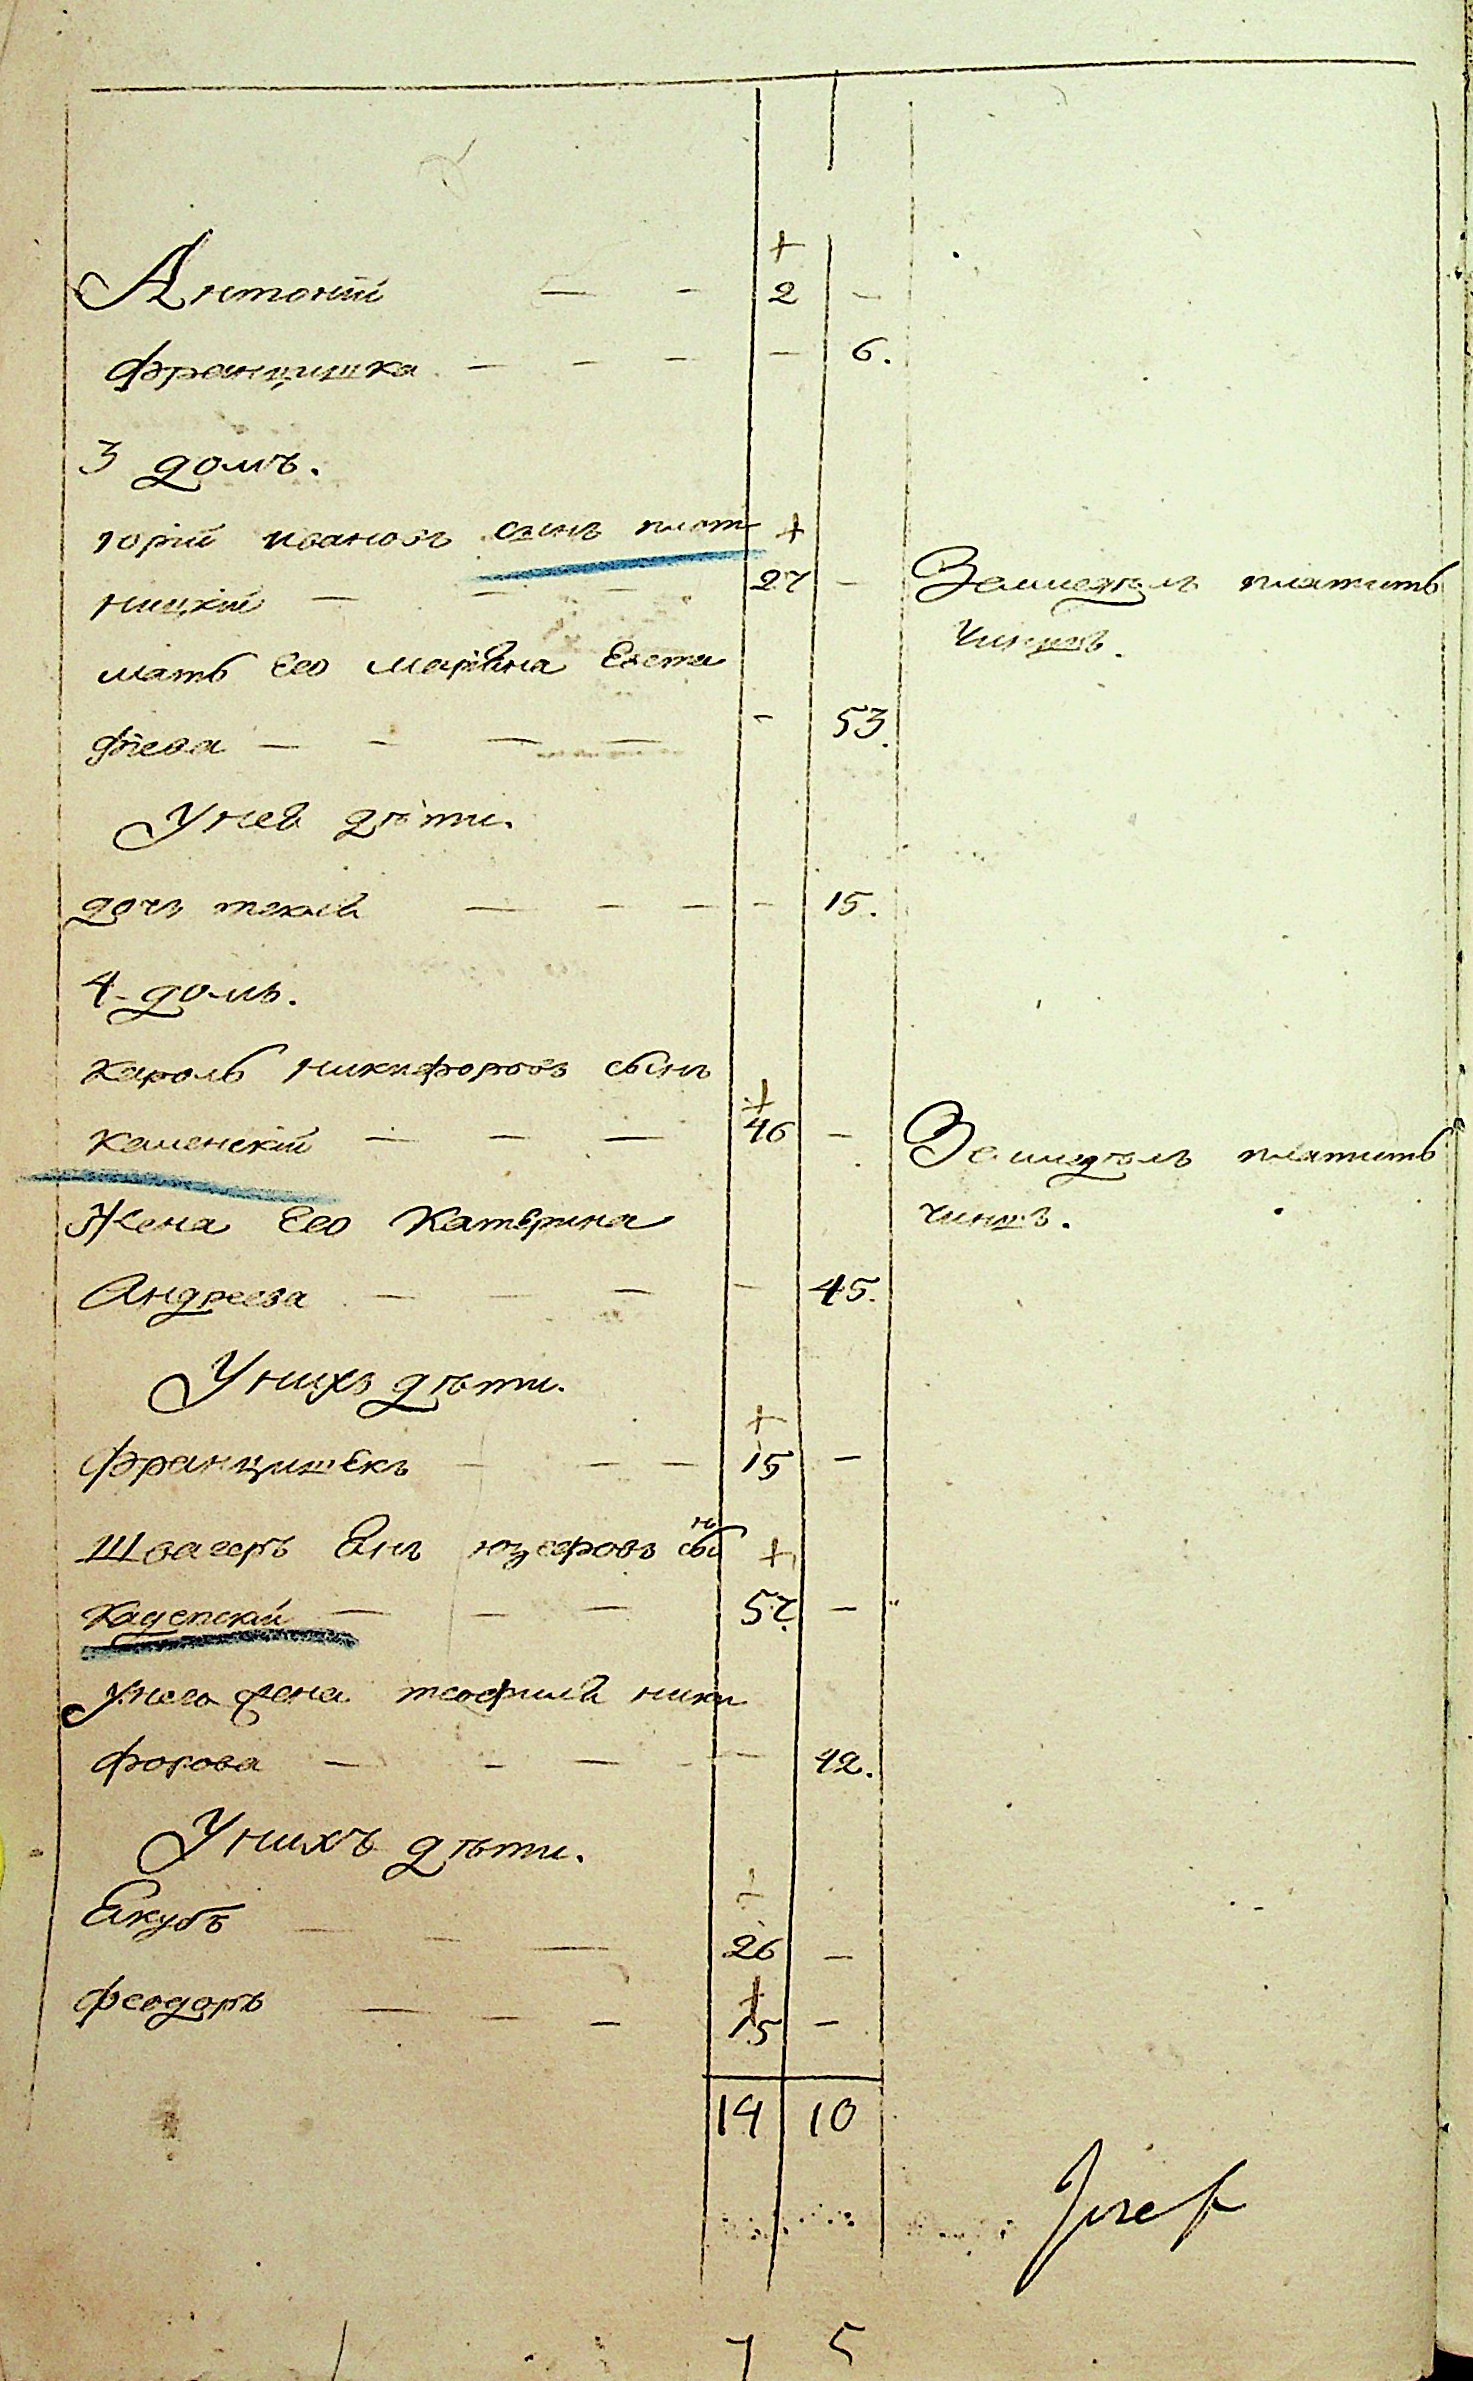 Антоній — — 2 —
Францишка — — — — 6.
3 домъ.
Юрій Ивановъ сынъ плот
ницкій — — — 27 — Замледѣлъ платитъ
чиншъ.
мать Его Маріяна Евста
фіева — — — — — 53.
У нея дѣти.
дочь текля — — — — 15.
4 домъ.
Кароль Никифоровъ сынъ
Каменскій — — — 46 — Замледѣлъ платитъ
чиншъ.
Жена Его Катерина
Андреева — — — — 45.
У нихъ дѣти.
Францишекъ — — — 15 —
Швагеръ Янъ Юзефовъ сынъ
— — — 57. —
У него жена теофиля ники
форова — — — — 42.
У нихъ дѣти.
Якубъ — — — 26 —
Феодоръ — — — 15 —
14 10
Jozef
7 5